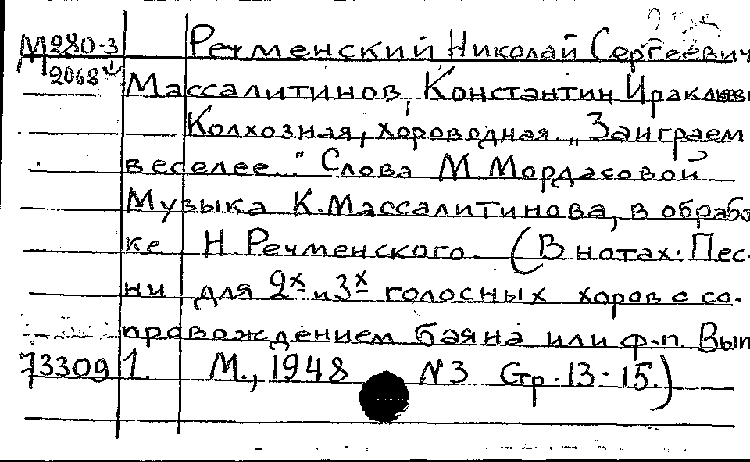 М280-3 Речменский Николай Сергеевич
2068 Массалитинов, Константин Ираклиев
Колхозная, хороводная „Заиграем
веселее..." Слова М. Мордасовой
Музыка К. Массалитинова, в обрабо
ке Н. Речменского. (В нотах: Пес-
ни для 2х и 3х голосных хоров с со-
провождением баяна или ф-п. Вып
73309 1. М., 1948 №3 Стр. 13-15.)